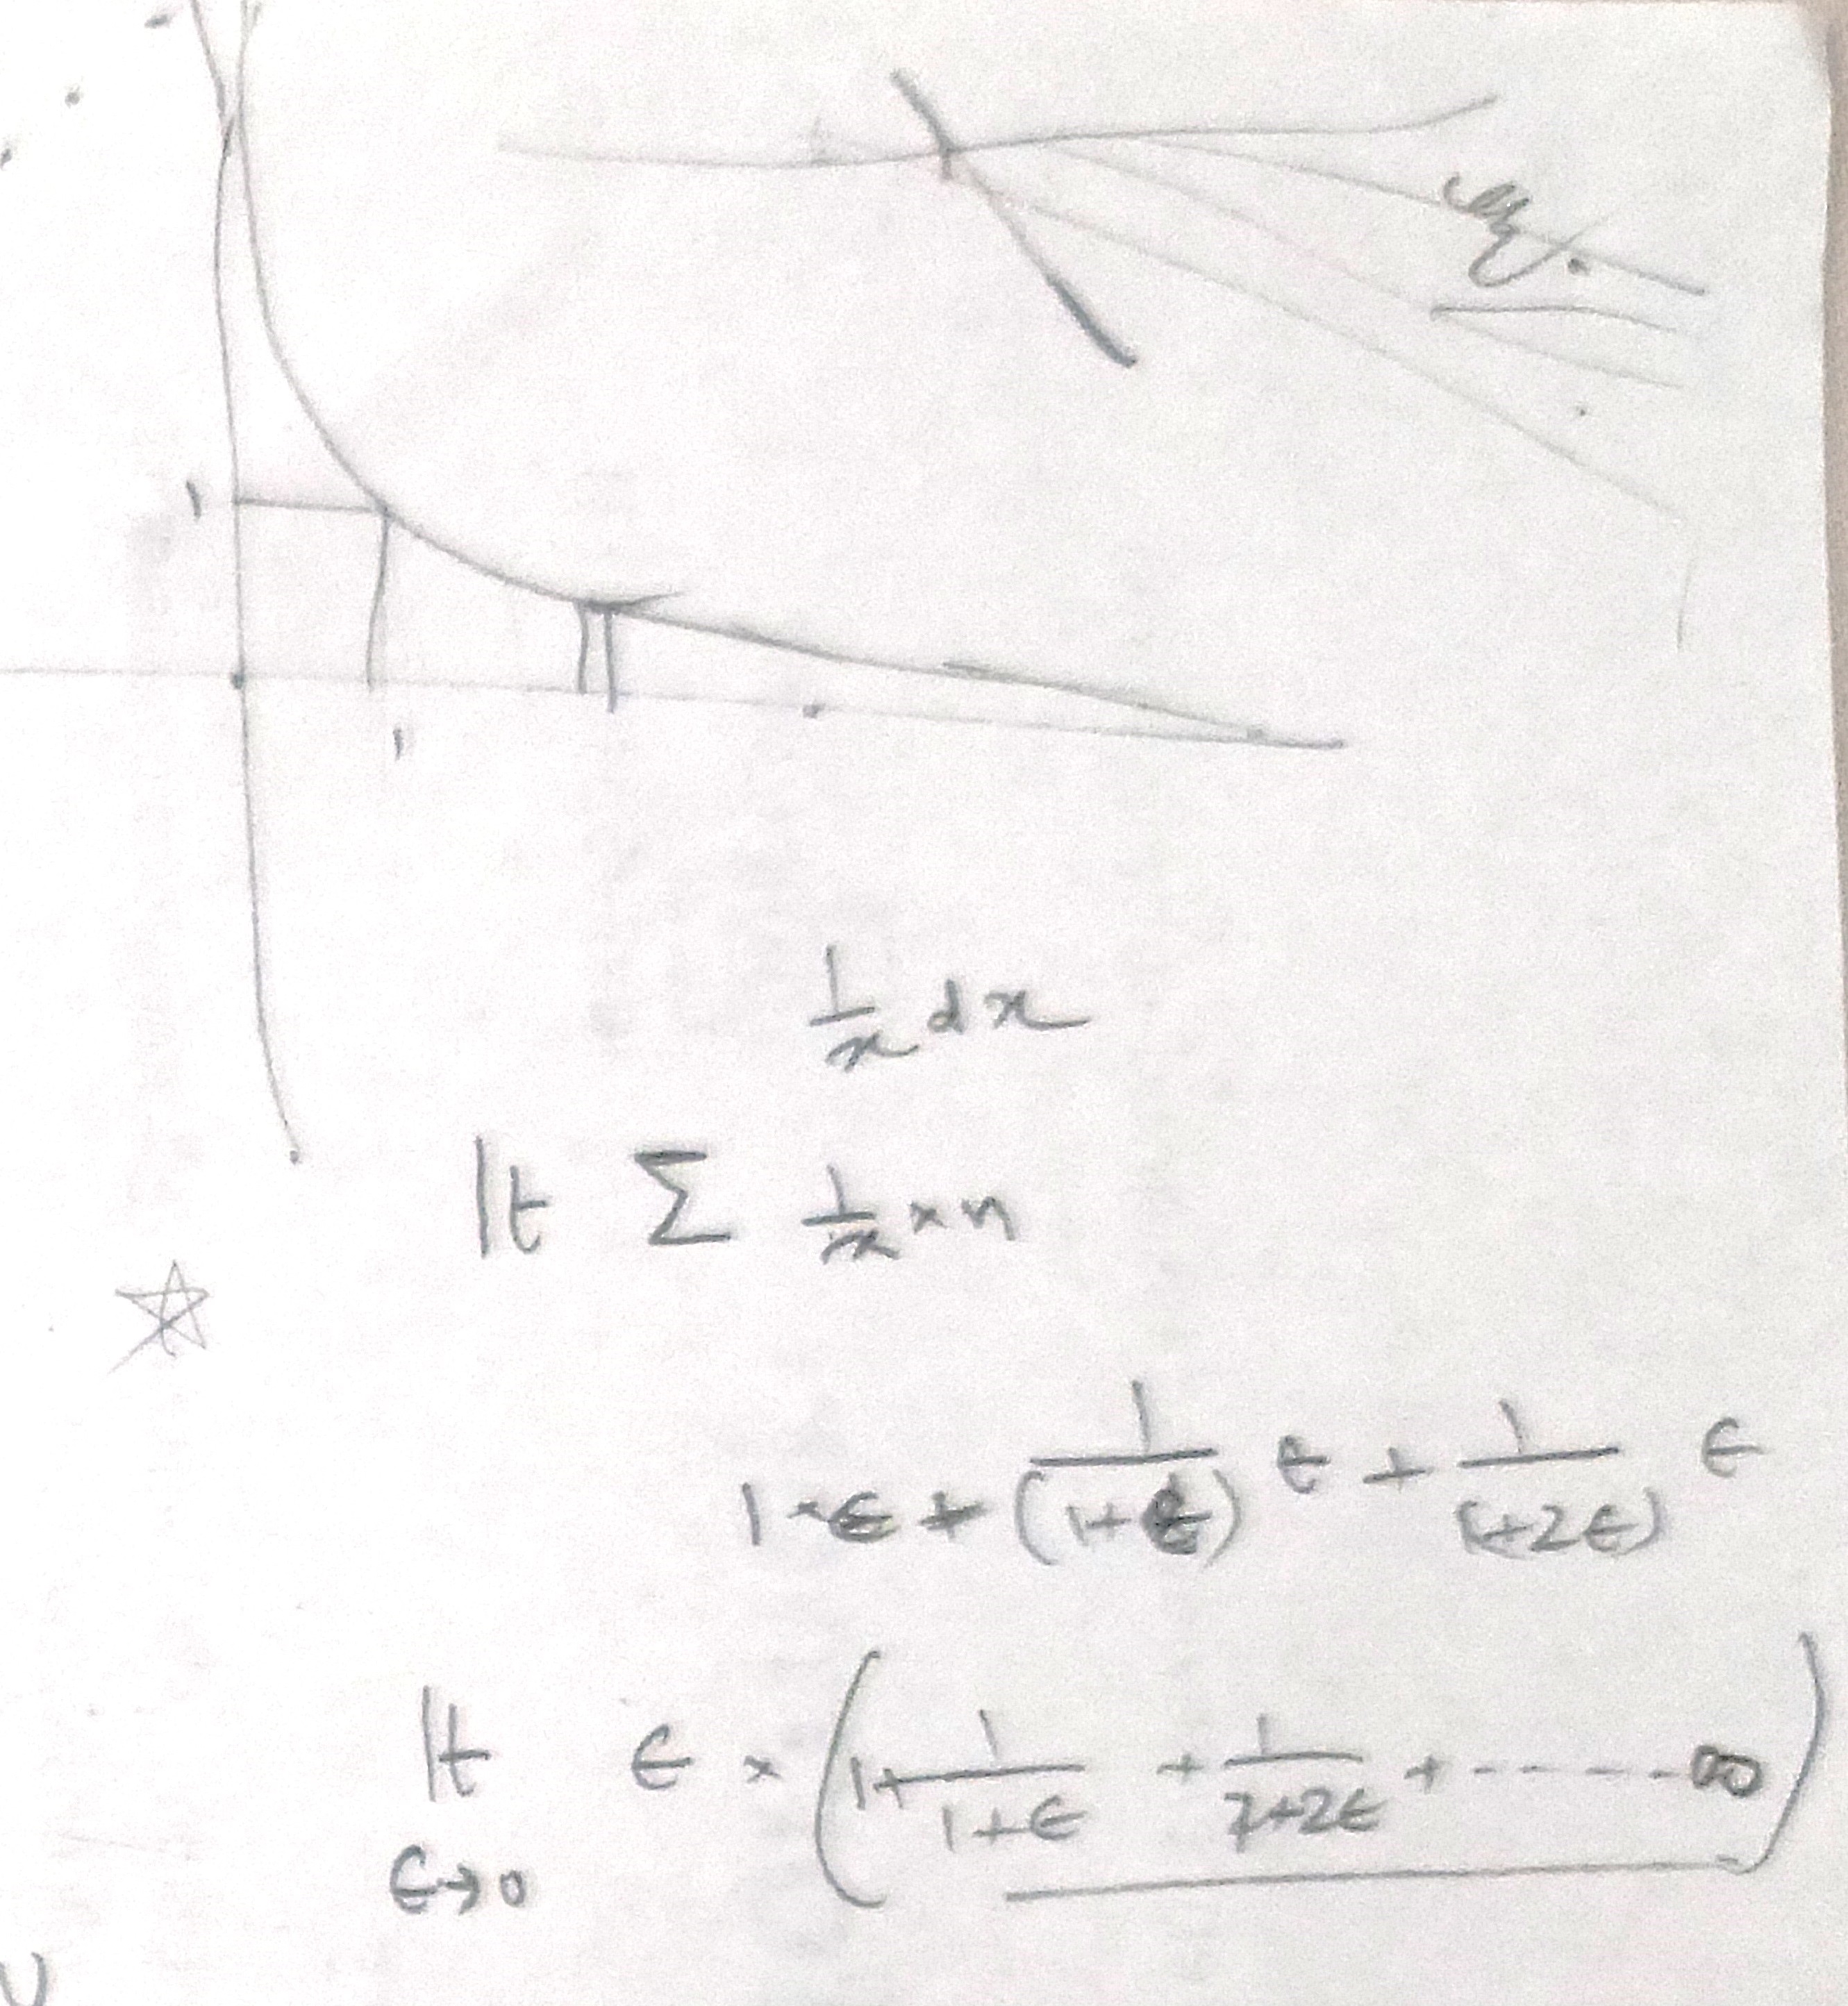 1
1
1/x dx
lt Σ 1/x × n
1×ϵ + 1/(1+ϵ) ϵ + 1/(1+2ϵ) ϵ
lt ϵ→0 ϵ × (1 + 1/(1+ϵ) + 1/(1+2ϵ) + ------∞)